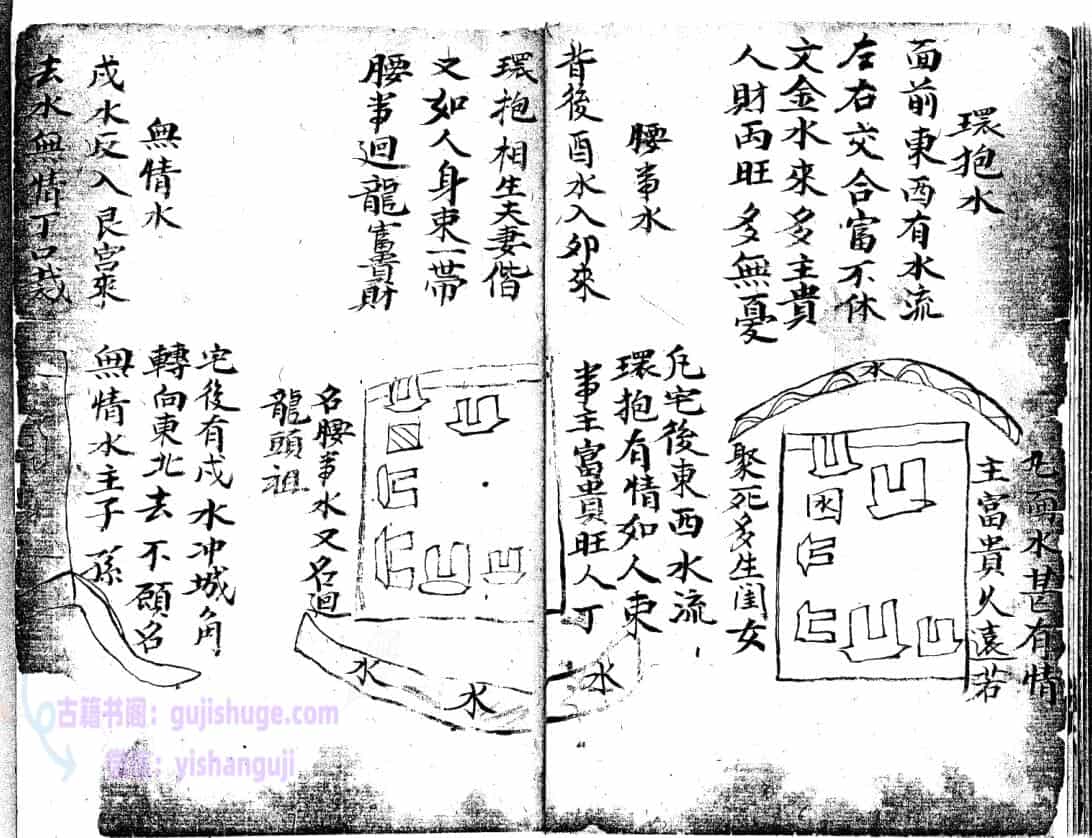 環抱水
面前東西有水流
左右交合富不休
文金水來多主貴
人財両旺多無憂
凡面水甚有情
主富貴久遠若
水
聚死多生閨女
腰事水
背後酉水入卯來
環抱相生夫妻偕
又如人身束一帶
腰事迴龍富貴財
凡宅後東西水流
環抱有情如人束
事主富貴旺人丁
名腰事水又名迴
龍頭祖
水
水
水
無情水
戍水反入艮宮來
去水無情丁口災
宅後有戍水冲城角
轉向東北去不顧名
無情水主子孫
古籍书阁：gujishuge.com
yishanguji